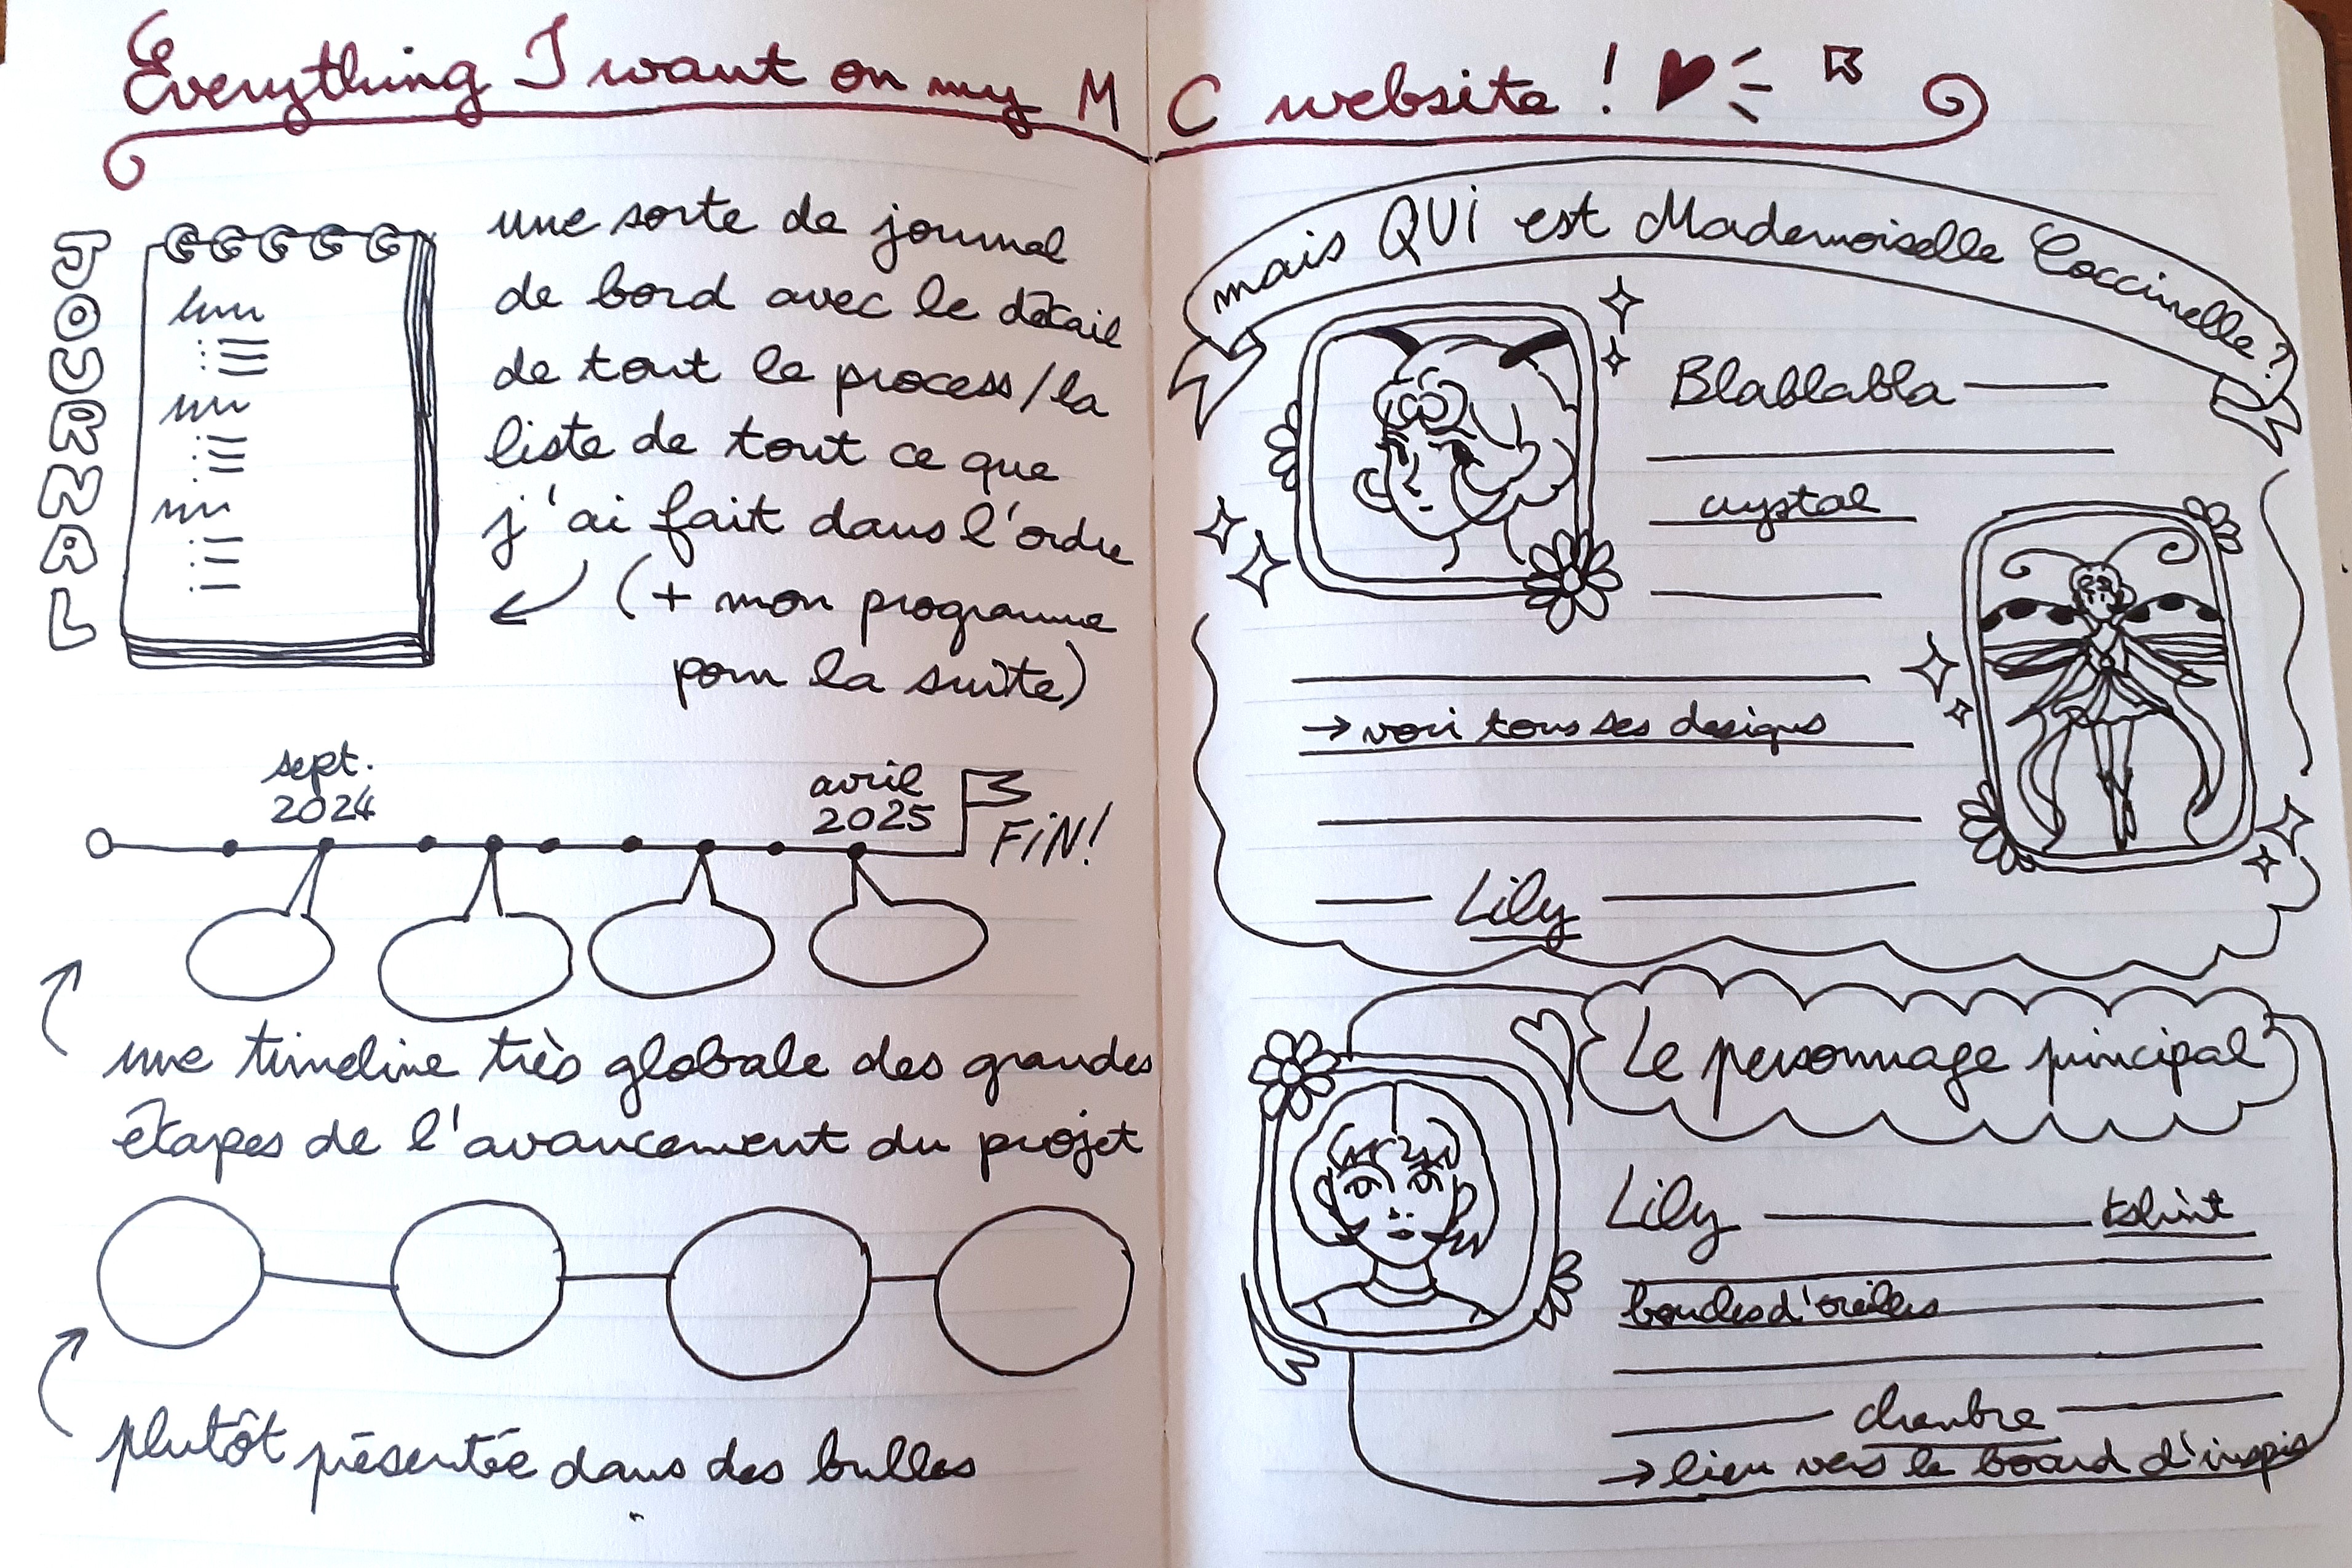 Everything I want on my MC website !
JOURNAL
une sorte de journal
de bord avec le détail
de tout le process/la
liste de tout ce que
j'ai fait dans l'ordre
(+ mon programme
pour la suite)
sept.
2024
avril
2025
FiN!
une timeline très globale des grandes
étapes de l'avancement du projet
plutôt présentée dans des bulles
mais QUi est Mademoiselle Coccinelle ?
Blablabla
crystal
→ voir tous ses designs
Lily
Le personnage principal
Lily tshirt
boucles d'oreilles
chambre
→ lien vers le board d'inspis